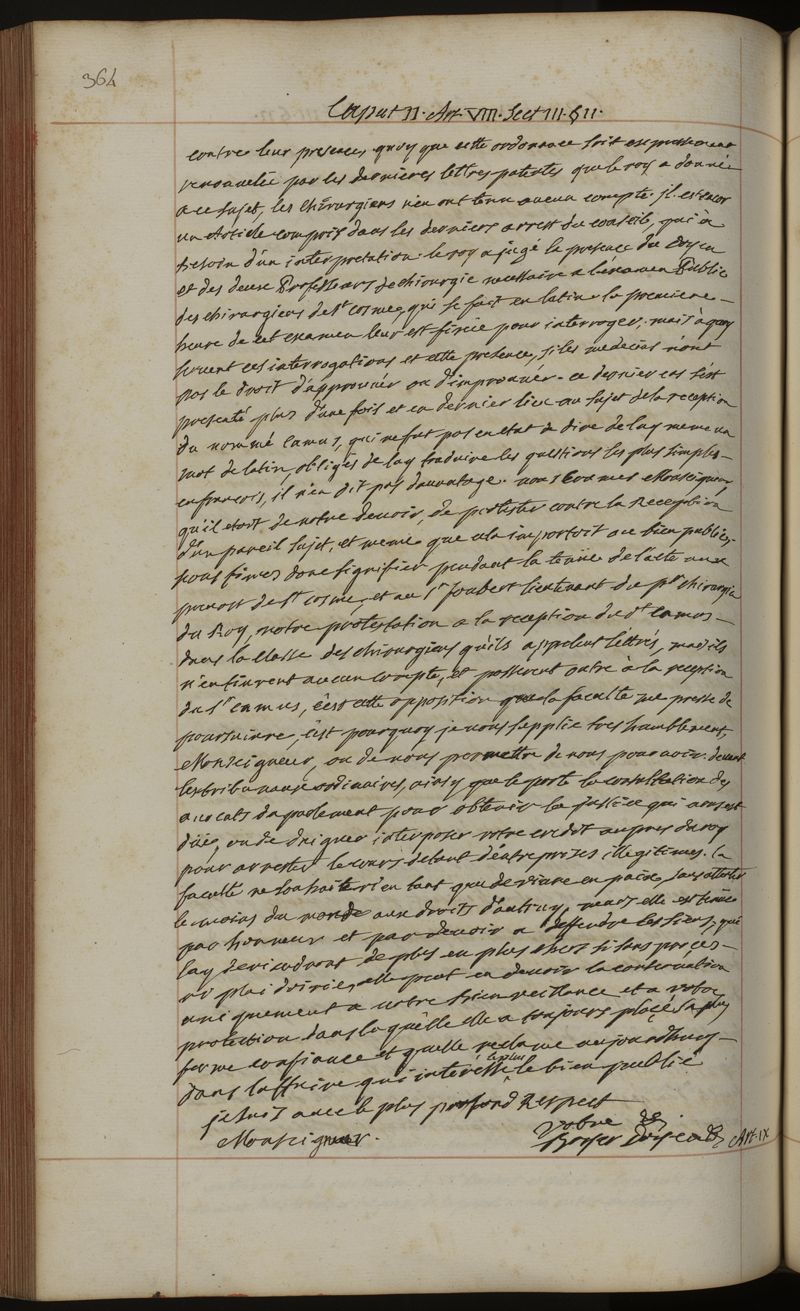 364
Caput II. Art. VIII. Sect III. § II.
contre leur presence, quoy que cette ordonnance soit expressement
renouvelée par les dernieres lettres patentes que le roy a donné
a ce sujet, les chirurgiens n'en ont tenu aucun compte. il est encor
un article compris dans les derniers arrest du conseil, qui à
besoin d'un interpretation. le roy a jugé la presence du doyen
et des deux Professeurs de chirurgie necessaire a l'éxamen Public
des chirurgiens de St cosme, qui se fait en latin. la premiere
heure de cet examen leur est fixée pour interroger, mais à quoy
servent ces interrogations et cette presence, si les medecins n'ont
pas le droit d'approuvér ou d'improuvér. ce dernier cas s'est
presenté plus d'une fois et en dernier lieu au sujet de la reception
du nommé camus, qui ne fut pas en etat de dire de luy meme un
mot de latin, obligés de luy traduire les questions les plus simples
en françois, il n'en dit pas davantage. nous crumes Monseigneur
qu'il etoit de notre devoir, de protester contre la Reception
d'un pareil sujet, et meme que cela importoit au bien public,
nous fimes donc signifier pendant la tenüe de l'acte aux
prevost de St cosme, et au Sr Joubert lieutenant du pr chirurgien
du Roy, notre protestation a la reception du dt camus
dans la classe des chirurgiens qu'ils appelent léttrés, mais ils
n'en firent aucun compte, et passerent outre à la reception
du Sr camus, c'est cette opposition que la faculté me presse de
poursuivre, c'est pourquoy je vous supplie tres humblement,
Monseigneur, ou de nous permettre de nous pourvoir devant
les tribunaux ordinaires, ainsy que le porte la consultation des
avocats du parlement pour obtenir la justice qui nous est
düe, ou de daigner interposer votre credit aupres du roy
pour arrester le cours de tant d'entreprises illegitimes. la
faculté ne souhaite rien tant que de vivre en paix, sans attenter
le moins du monde aux droits d'autruy, mais elle est tenüe
par honneur et par devoir a deffendre les siens, qui
luy deviendront de plus en plus chers si sans procés
ni plaidoiries, elle peut en devoir la conservation
uniquement a votre bienveillance et a votre
protection dans laquelle elle a toujours placé sa plus
ferme confiance et quelle reclame aujourdhuy
dans laffaire qui intéresse le plus le bien public
je suis avec le plus profond Respect
Monseigneur.
votre &c.
Boyer doyen
Art. IX